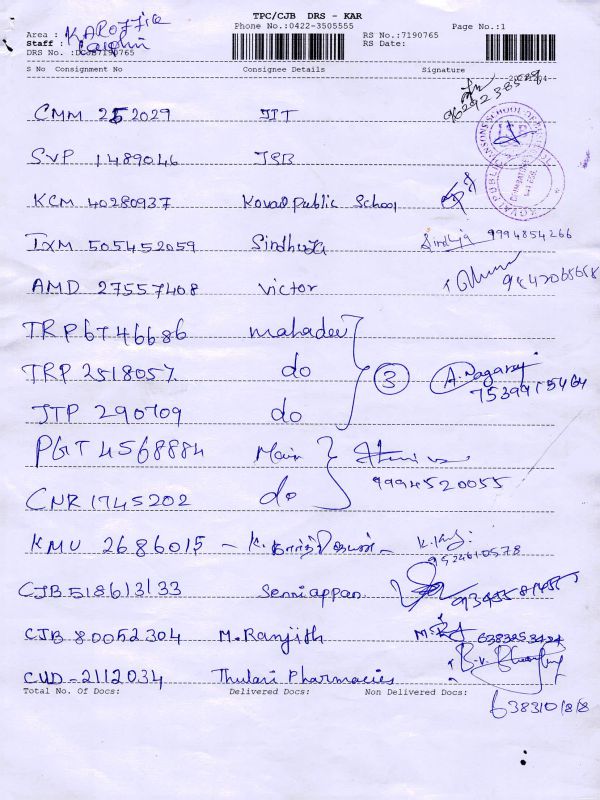 TPC/CJB DRS - KAR
Phone No.:0422-3505555 Page No.:1
Area : KAR OFFICE
RS No.:7190765
Staff :
RS Date:
DRS No. :DCJB7190765
S No Consignment No Consignee Details Signature
9629238529
CMM 252029 JIT
SVP 1489046 JSB
KCM 40280937 Kovai public School
IXM 505452059 Sindhuja Sindhuja 9994854266
AMD 27557408 Victor
TRP 6746686 mahadev
TRP 2518057 do 3 A. Nagaraj
JTP 290709 do 7539915464
PGT 4568884 Main
CNR 1745202 do 9994520055
KMU 2686015 - K. கார்த்திகேயன் -
9524610578
CJB 518613133 Senniappan
CJB 80052304 M. Ranjith
CUD - 2112034 Thulasi Pharmacies
Total No. Of Docs: Delivered Docs: Non Delivered Docs: